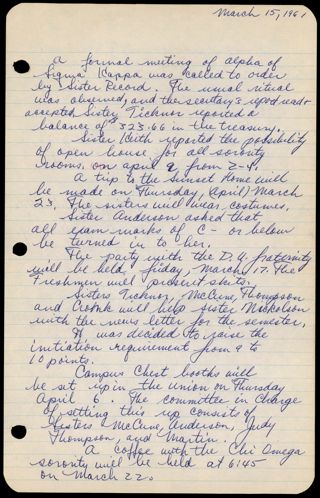 March 15, 1961
A formal meeting of alpha of
Sigma Kappa was called to order
by Sister Record. The usual ritual
was observed, and the secretary's report read &
accepted. Sister Ticknor reported a
balance of $323.66 in the treasury.
Sister Keith reported the possibility
of open house for all sorority
rooms on april 9 from 2-4.
A trip to the Sunset Home will
be made on Thursday, April) March
23. The sisters will wear costumes.
Sister Anderson asked that
all exam marks of C- or below
be turned in to her.
The party with the D.U. fraternity
will be held friday, March 17. The
Freshmen will present skits.
Sisters Ticknor, McCune, Thompson
and Crook will help Sister Nickolson
with the news letter for the semester.
It was decided to raise the
initiation requirement from 9 to
10 points.
Campus Chest booths will
be set up in the Union on Thursday
April 6. The committee in Charge
of setting this up consists of
Sisters McCune, Anderson, Judy
Thompson, and Martin.
A coffee with the Chi Omega
sorority will be held at 6:45
on March 22.